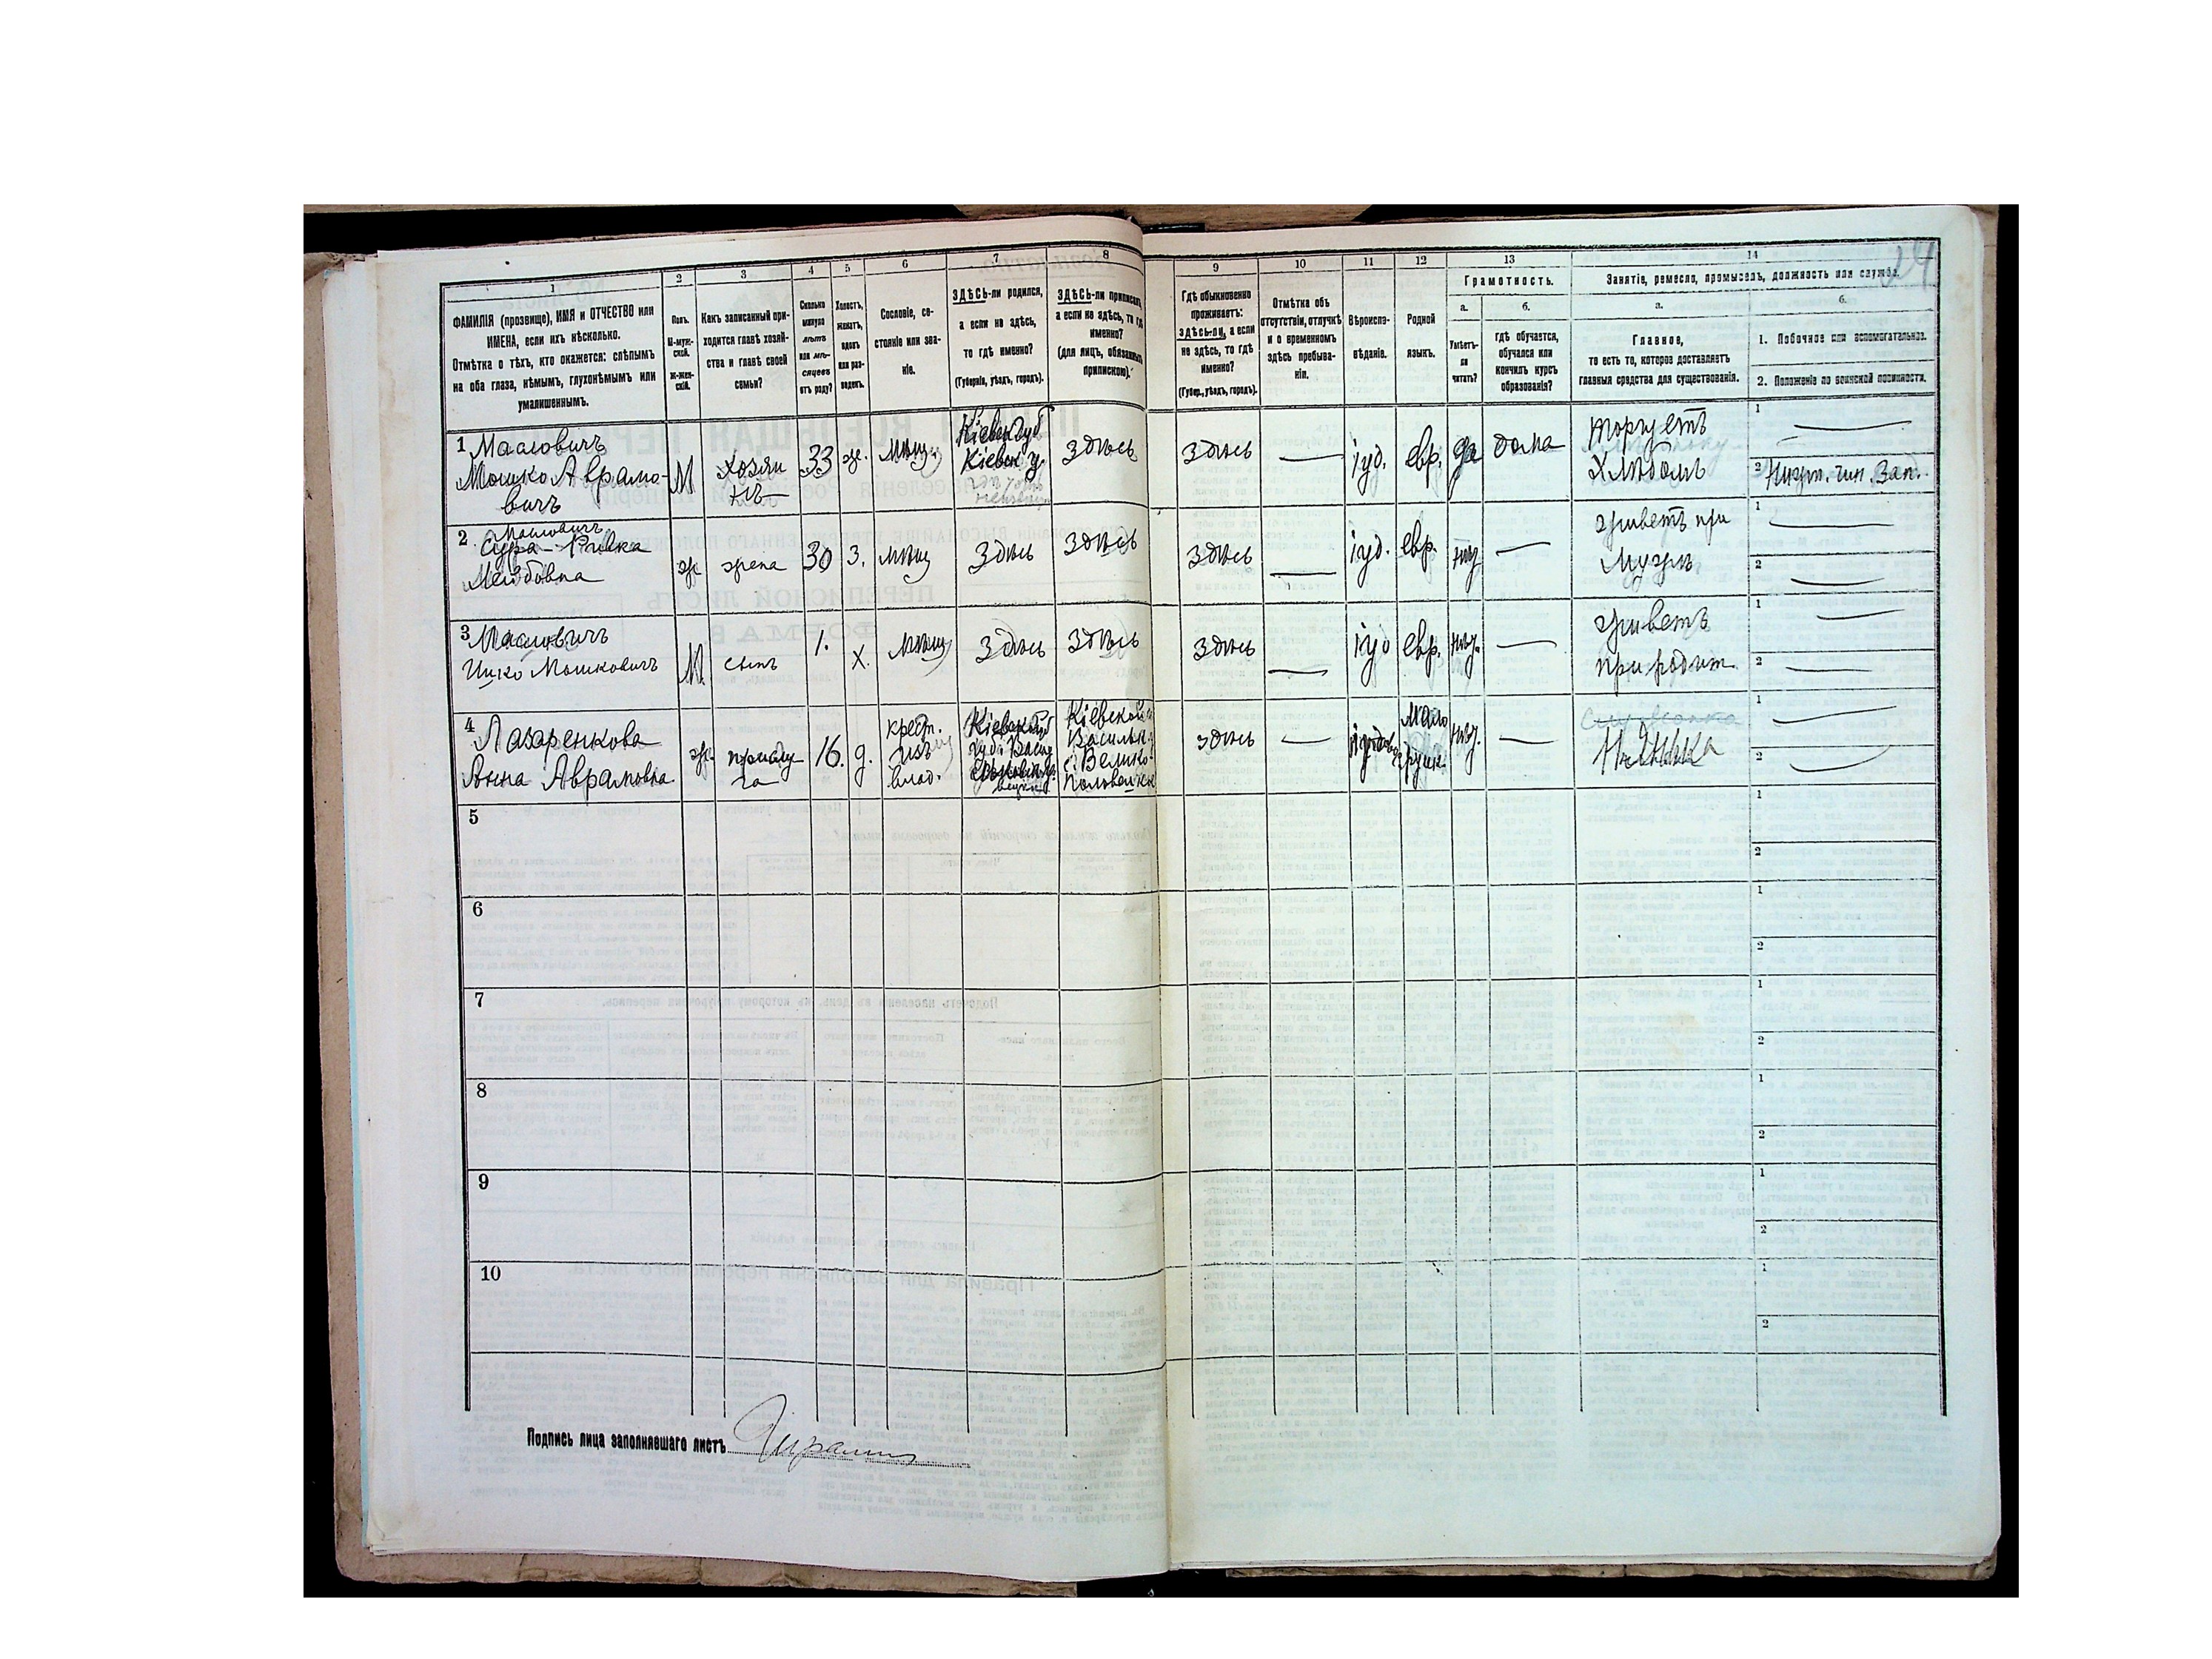 24
1
2
3
4
5
6
7
8
9
10
11
12
13
14
ФАМИЛІЯ (прозвище), ИМЯ и ОТЧЕСТВО или
ИМЕНА, если ихъ нѣсколько.
Отмѣтка о тѣхъ, кто окажется: слѣпымъ
на оба глаза, нѣмымъ, глухонѣмымъ или
умалишеннымъ.
Полъ.
М-муж-
ской.
Ж-жен-
скій.
Какъ записанный при-
ходится главѣ хозяй-
ства и главѣ своей
семьи?
Сколько
минуло
лѣтъ
или мѣ-
сяцевъ
отъ роду?
Холостъ,
женатъ,
вдовъ
или раз-
веденъ.
Сословіе, со-
стояніе или зва-
ніе.
ЗДѢСЬ-ли родился,
а если не здѣсь,
то гдѣ именно?
(Губернія, уѣздъ, городъ).
ЗДѢСЬ-ли приписанъ,
а если не здѣсь, то гдѣ
именно?
(для лицъ, обязанныхъ
припискою).
Гдѣ обыкновенно
проживаетъ:
здѣсь-ли, а если
не здѣсь, то гдѣ
именно?
(Губер., уѣздъ, городъ).
Отмѣтка объ
отсутствіи, отлучкѣ
и о временномъ
здѣсь пребыва-
ніи.
Вѣроиспо-
вѣданіе.
Родной
языкъ.
Грамотность.
а.
Умѣетъ-
ли
читать?
б.
гдѣ обучается,
обучался или
кончилъ курсъ
образованія?
Занятіе, ремесло, промыселъ, должность или служба.
а.
Главное,
то есть то, которое доставляетъ
главныя средства для существованія.
б.
1. Побочное или вспомогательное.
2. Положеніе по воинской повинности.
1 Масловичъ
Мошко Аврамо-
вичъ
М
хозяи
нъ
33
ж.
мѣщ.
Кіевск губ
Кіевск у.
здѣсь
здѣсь
—
іуд.
евр.
да
дома
торгуетъ
хлѣбомъ
1 —
2 Нижн. чин. Зап.
2. Масловичъ
Сура-Ривка
Лейбовна
ж
жена
30
з.
мѣщ
здѣсь
здѣсь
здѣсь
—
іуд.
евр.
нѣт
—
живетъ при
мужѣ
1 —
2 —
3 Масловичъ
Ицко Мошковичъ
М.
сынъ
1.
х.
мѣщ
здѣсь
здѣсь
здѣсь
—
іуд
евр.
нѣт.
—
живетъ
при родит.
1 —
2 —
4 Лазаренкова
Анна Аврамовна
ж.
прислу
га
16.
д.
крест.
изъ
влад.
Кіевской
Васильк.
с. Велико-
Половецк
здѣсь
—
мало
русск.
нѣт.
—
Нянька
1 —
2 —
5
1
2
6
1
2
7
1
2
8
1
2
9
1
2
10
1
2
Подпись лица заполнявшаго листъ